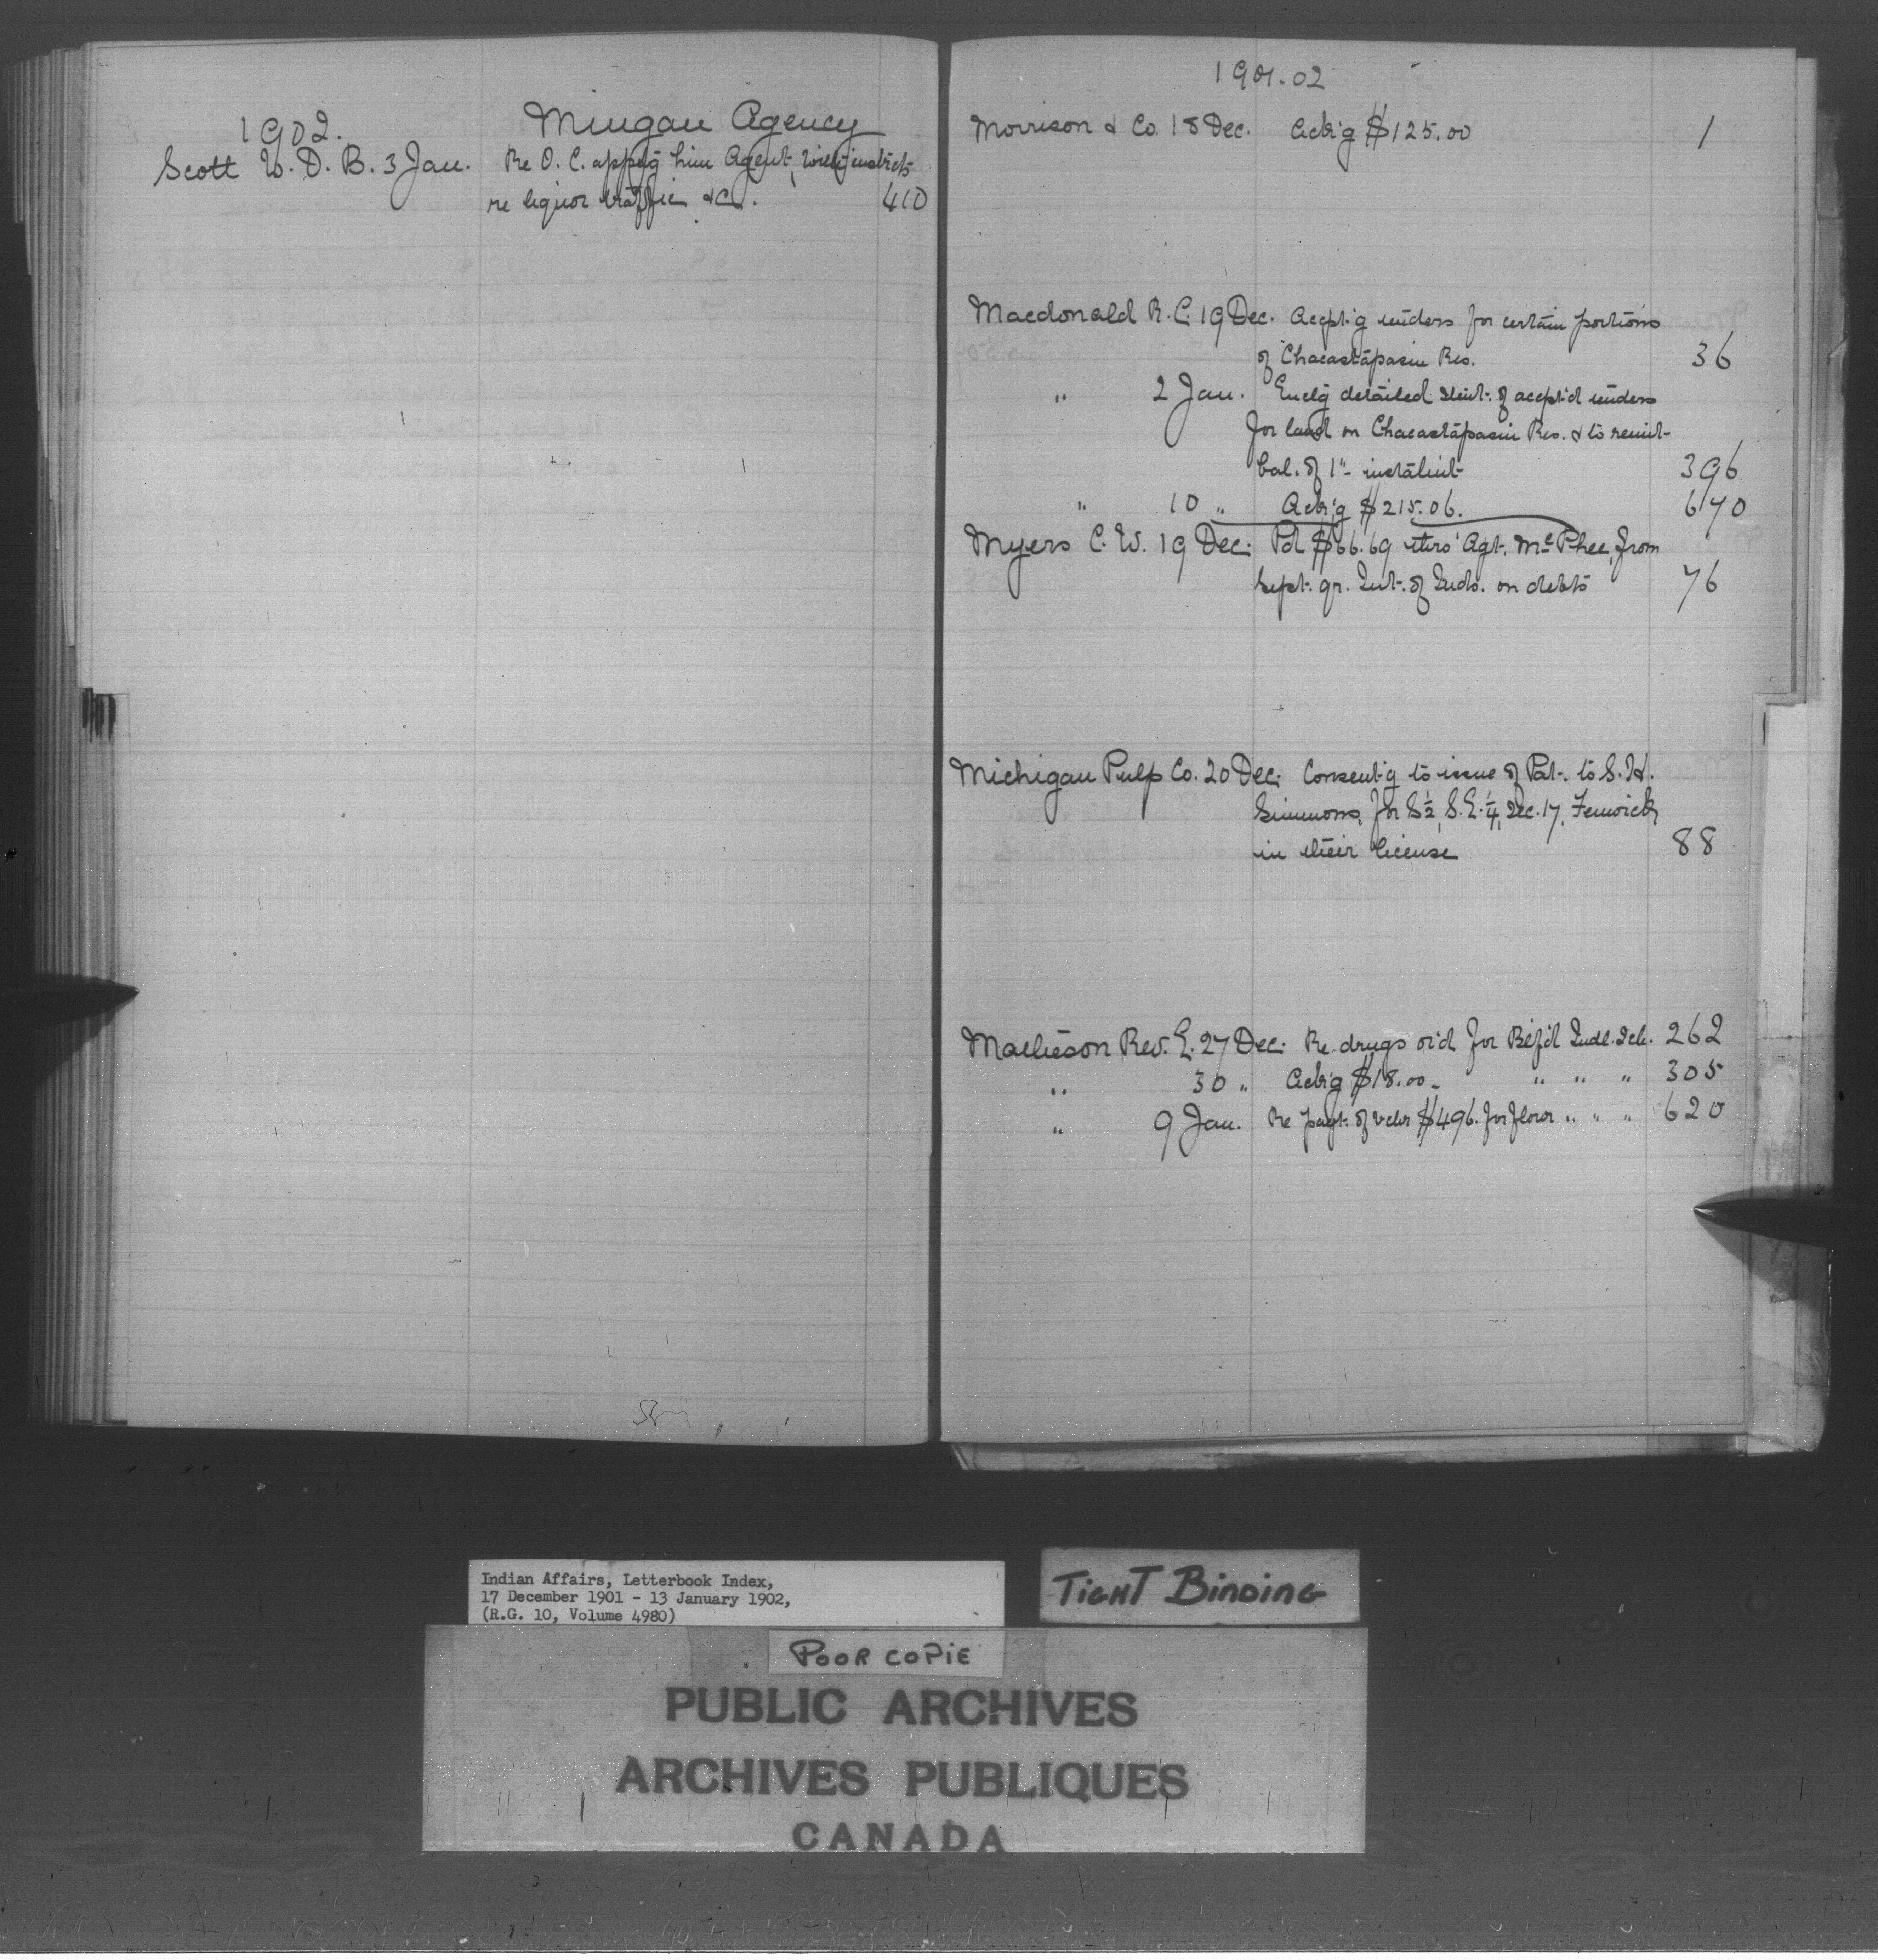 1902. Mingan Agency
Scott W. D. B. 3 Jan. Re O. C. app'g him Agent, with instrcts
re liquor traffic &c. 410
1901-02
Morrison & Co. 18 Dec. Ack'g $125.00 1
Macdonald R. C. 19 Dec. Accpt'g tenders for certain portions
of Chacastapasin Res. 36
" 2 Jan. Encl'g detailed stmt. of accpt'd tenders
for land on Chacastapasin Res. & to remit
bal. of 1st instalmt 396
" 10 " Ack'g $215.06. 670
Myers C. W. 19 Dec. Pd $66.69 thro' Agt. McPhee, from
Sept. qr. Int. of Inds. on debts 76
Michigan Pulp Co. 20 Dec. Consent'g to issue of Pat. to S. H.
Simmons, for S½, S.E.¼, Sec. 17, Fenwick,
in their license 88
Matheson Rev. E. 27 Dec. Re drugs or'd for Btlf'd Indl. Sch. 262
" 30 " Ack'g $18.00 - " " " 305
" 9 Jan. Re payt. of vchr $496. for flour " " " 620
Indian Affairs, Letterbook Index,
17 December 1901 - 13 January 1902,
(R.G. 10, Volume 4980)
TIGHT BINDING
POOR COPIE
PUBLIC ARCHIVES
ARCHIVES PUBLIQUES
CANADA